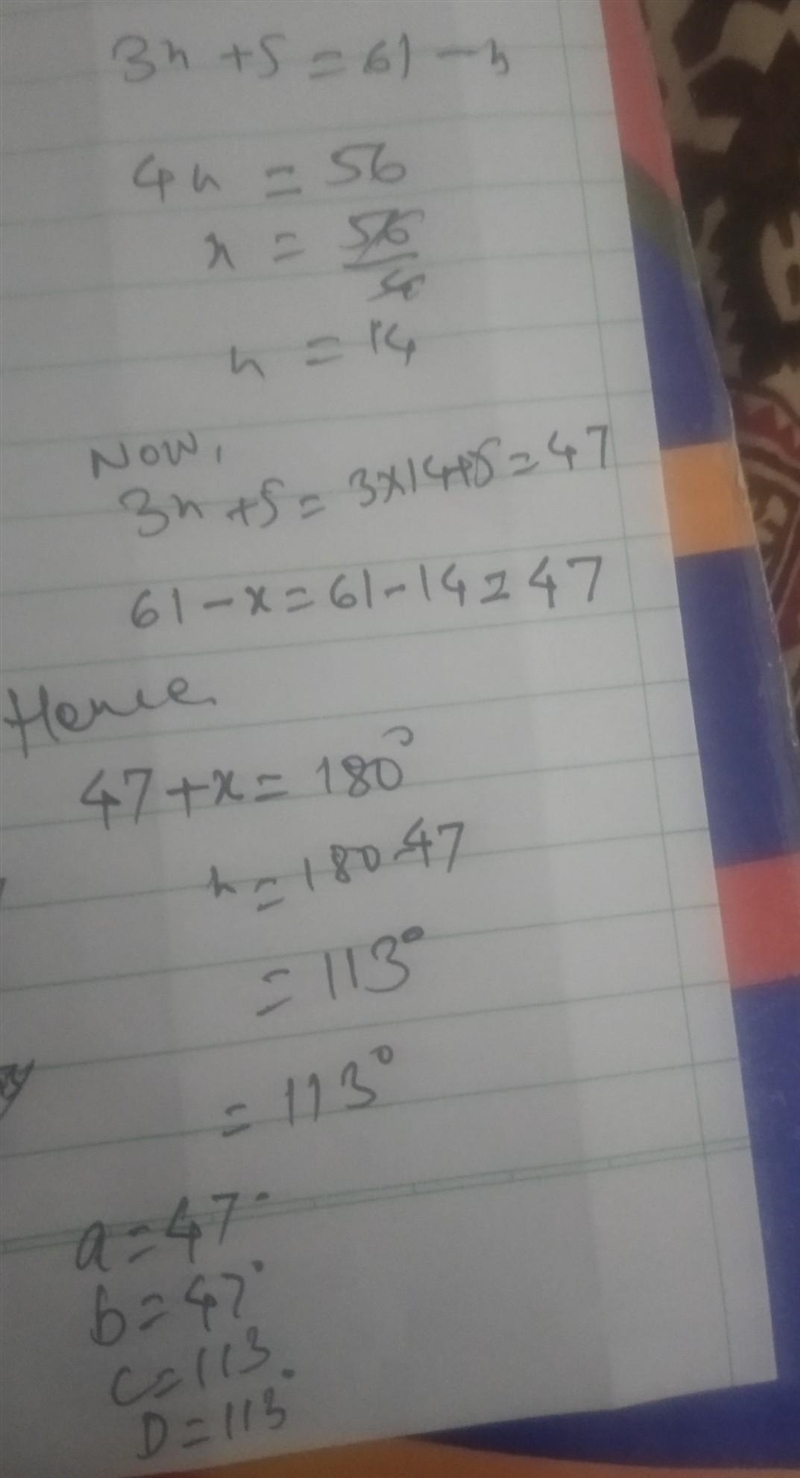 3x + 5 = 61 - x
4x = 56
x = 56/4
x = 14
Now,
3x + 5 = 3x14+5 = 47
61 - x = 61 - 14 = 47
Hence
47 + x = 180°
x = 180-47
= 113°
= 113°
a = 47°
b = 47°
C = 113°
D = 113